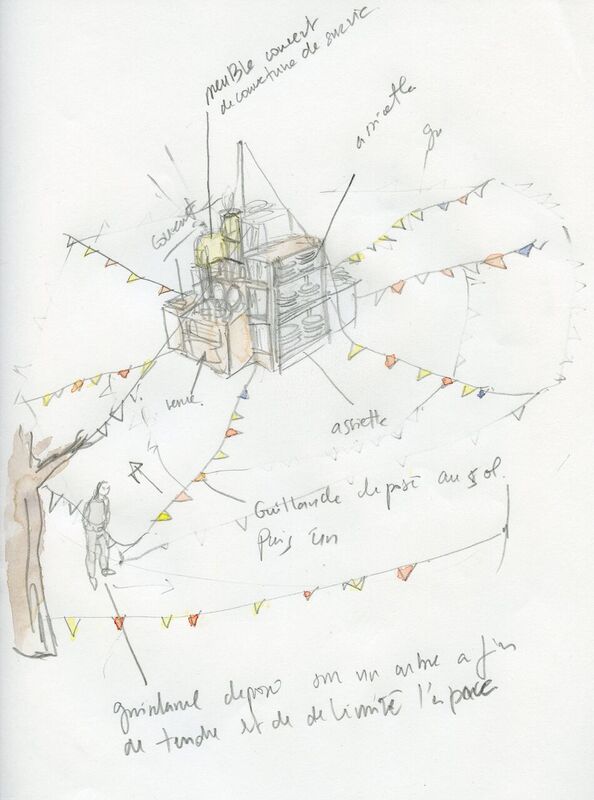 meuble couvert
de couverture de survie
assiette
gu
couvert
verre.
assiette
Guillande deposé au sol.
Puis un
guirlande deposé sur un arbre a fin
de tendre et de delimité l'espace